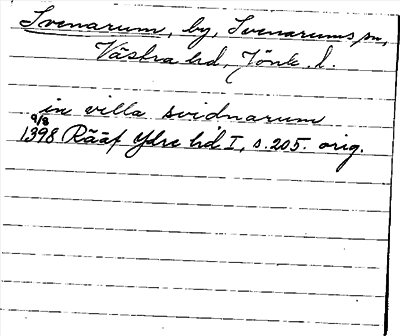 Svenarum, by, Svenarums sn,
Västra hd, Jönk. l.
in villa svidnarum
9/8
1398 Rääf Ydre hd I, s. 205. orig.